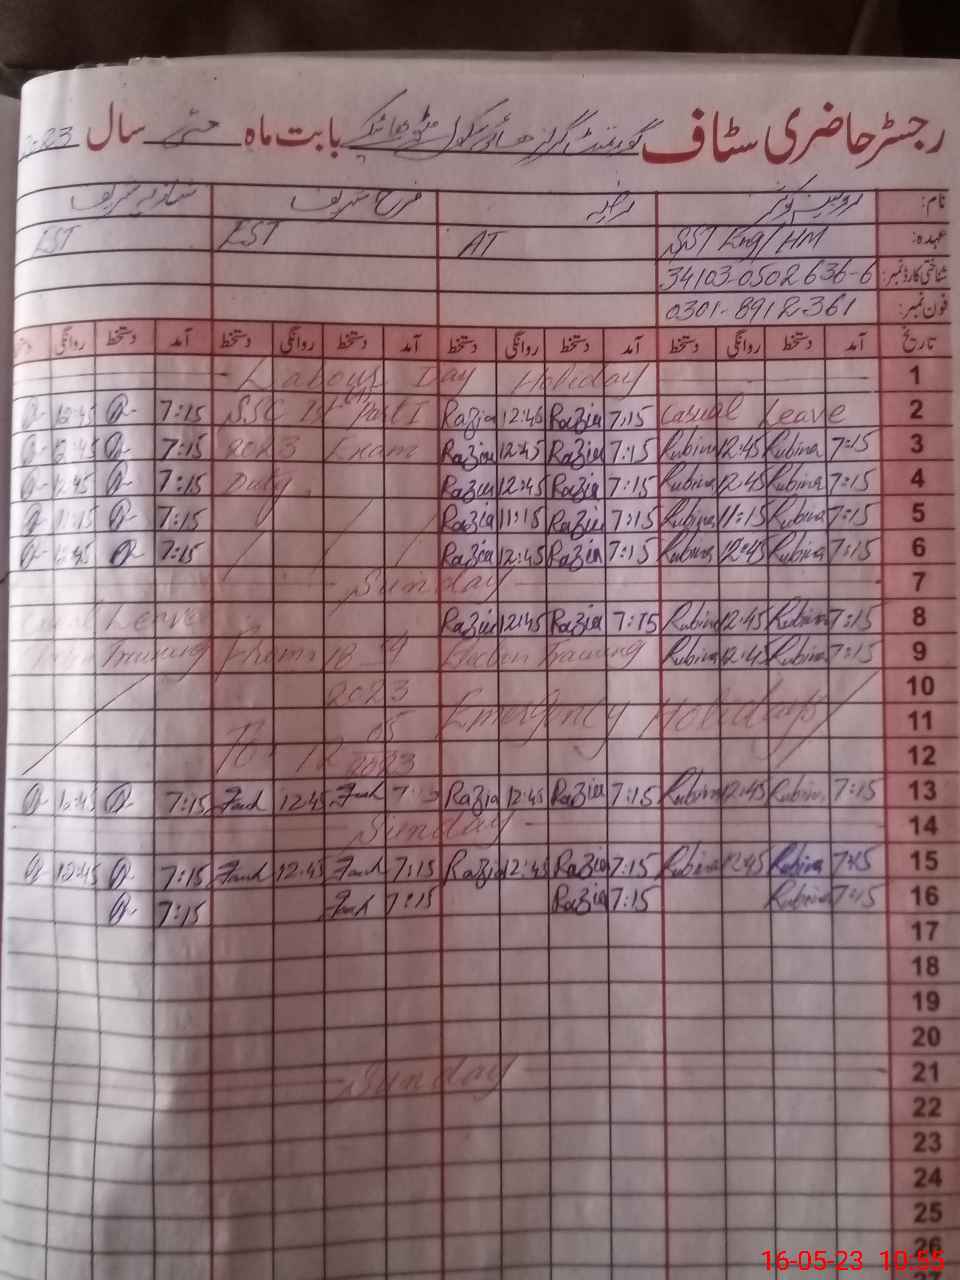 رجسٹر حاضری سٹاف گورنمنٹ گرلز ھائی سکول بابت ماہ مئی سال 2023
نام: روبینہ کوثر رضیہ فرح شریف شازیہ شریف
عہدہ: SST Eng/HM AT EST EST
شناختی کارڈ نمبر: 34103-0502636-6
فون نمبر: 0301-8912361
تاریخ آمد دستخط روانگی دستخط آمد دستخط روانگی دستخط آمد دستخط روانگی دستخط آمد دستخط روانگی
1 Labour Day Holiday
2 Casual Leave 7:15 Razia 12:45 Razia SSC 1st Part I 7:15 12:45
3 7:15 Rubina 12:45 Rubina 7:15 Razia 12:45 Razia 2023 Exam 7:15 12:45
4 7:15 Rubina 12:45 Rubina 7:15 Razia 12:45 Razia Duty 7:15 12:45
5 7:15 Rubina 11:15 Rubina 7:15 Razia 11:15 Razia 7:15 11:15
6 7:15 Rubina 12:45 Rubina 7:15 Razia 12:45 Razia 7:15 12:45
7 Sunday
8 7:15 Rubina 12:45 Rubina 7:15 Razia 12:45 Razia Casual Leave
9 7:15 Rubina 12:45 Rubina Training From 18 Training
10 2023
11 Emergency Holidays 05
12 To 12 2023
13 7:15 Rubina 12:45 Rubina 7:15 Razia 12:45 Razia 7:15 Farah 12:45 Farah 7:15 12:45
14 Sunday
15 7:15 Rubina 12:45 Rubina 7:15 Razia 12:45 Razia 7:15 Farah 12:45 Farah 7:15 12:45
16 7:15 Rubina 7:15 Razia 7:15 Farah 7:15
17
18
19
20
21 Sunday
22
23
24
25
26
16-05-23 10:55